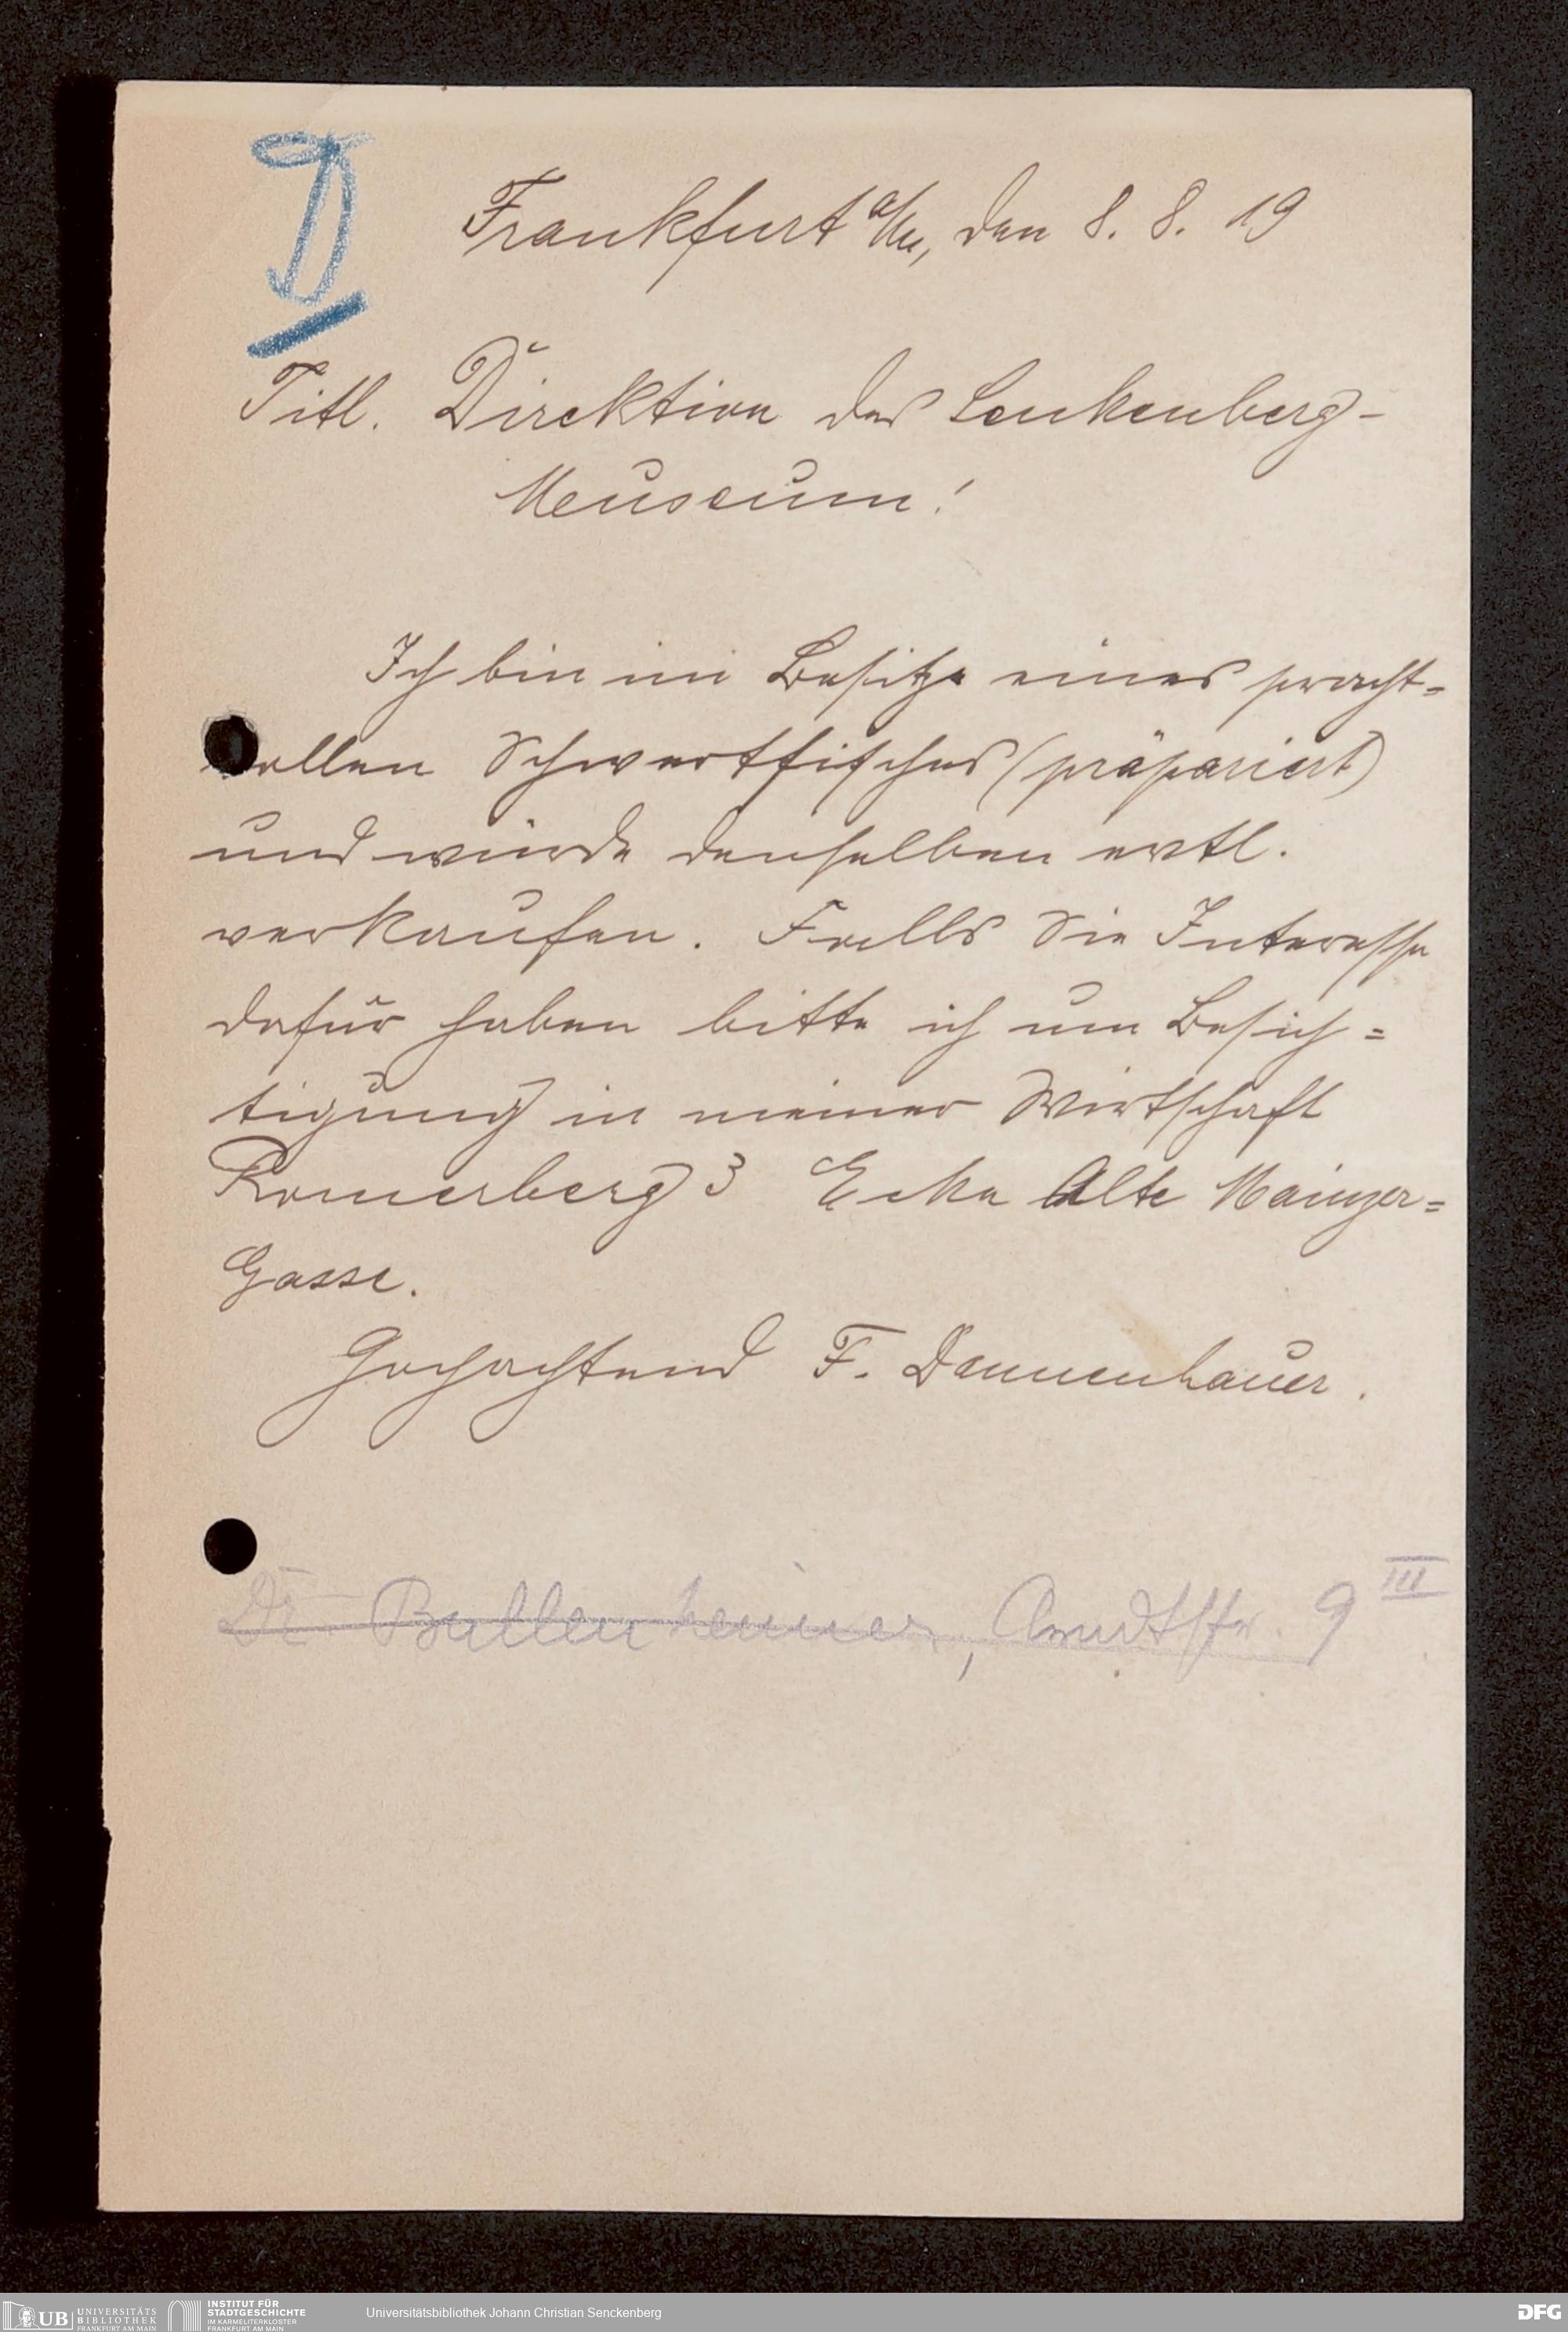 D
Frankfurt a/M, den 8. 8. 19
Titl. Direktion des Senkenberg-
Meuseum!
Ich bin im Besitze eines pracht=
vollen Schwertfisches (präpariert)
und würde denselben evtl.
verkaufen. Falls Sie Interesse
dafür haben bitte ich um Besich=
tigung in meiner Wirtschaft
Römerberg 3 Ecke Alte Mainzer=
Gasse.
Hochachtend F. Dannenhauer.
Dr. Ballenheimer, Arndtstr. 9 III
UB UNIVERSITÄTS
BIBLIOTHEK
FRANKFURT AM MAIN
INSTITUT FÜR
STADTGESCHICHTE
IM KARMELITERKLOSTER
FRANKFURT AM MAIN
Universitätsbibliothek Johann Christian Senckenberg
DFG